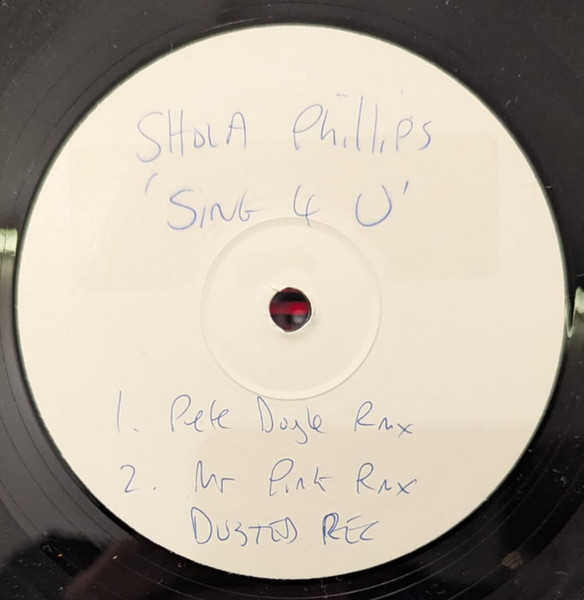 SHOLA Phillips
'SING 4 U'
1. Pete Doyle Rmx
2. Mr Pink Rmx
DUSTED REC